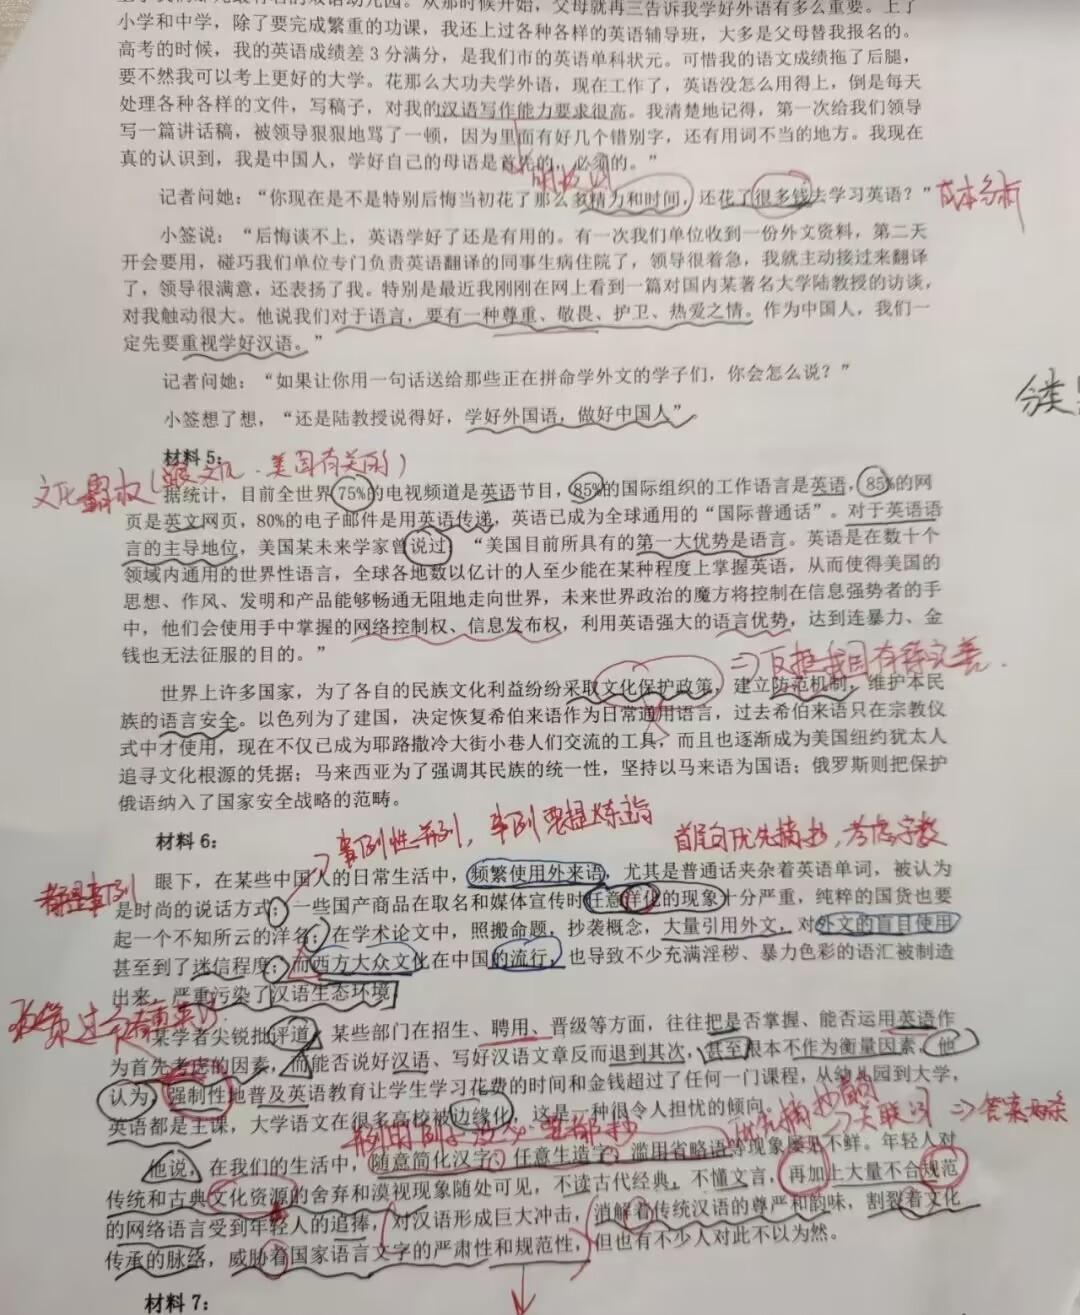 小学和中学，除了要完成繁重的功课，我还上过各种各样的英语辅导班，大多是父母替我报名的。
高考的时候，我的英语成绩差3分满分，是我们市的英语单科状元。可惜我的语文成绩拖了后腿，
要不然我可以考上更好的大学。花那么大功夫学外语，现在工作了，英语没怎么用得上，倒是每天
处理各种各样的文件，写稿子，对我的汉语写作能力要求很高。我清楚地记得，第一次给我们领导
写一篇讲话稿，被领导狠狠地骂了一顿，因为里面有好几个错别字，还有用词不当的地方。我现在
真的认识到，我是中国人，学好自己的母语是首先的，必须的。”
记者问她：“你现在是不是特别后悔当初花了那么多精力和时间，还花了很多钱去学习英语？”
成本分析
小签说：“后悔谈不上，英语学好了还是有用的。有一次我们单位收到一份外文资料，第二天
开会要用，碰巧我们单位专门负责英语翻译的同事生病住院了，领导很着急，我就主动接过来翻译
了，领导很满意，还表扬了我。特别是最近我刚刚在网上看到一篇对国内某著名大学陆教授的访谈，
对我触动很大。他说我们对于语言，要有一种尊重、敬畏、护卫、热爱之情。作为中国人，我们一
定先要重视学好汉语。”
记者问她：“如果让你用一句话送给那些正在拼命学外文的学子们，你会怎么说？”
分类
小签想了想，“还是陆教授说得好，学好外国语，做好中国人”
材料5：
文化霸权（ 美国有关的）
据统计，目前全世界75%的电视频道是英语节目，85%的国际组织的工作语言是英语，85%的网
页是英文网页，80%的电子邮件是用英语传递，英语已成为全球通用的“国际普通话”。对于英语语
言的主导地位，美国某未来学家曾说过：“美国目前所具有的第一大优势是语言。英语是在数十个
领域内通用的世界性语言，全球各地数以亿计的人至少能在某种程度上掌握英语，从而使得美国的
思想、作风、发明和产品能够畅通无阻地走向世界，未来世界政治的魔方将控制在信息强势者的手
中，他们会使用手中掌握的网络控制权、信息发布权，利用英语强大的语言优势，达到连暴力、金
钱也无法征服的目的。”
⇒反推我国有待完善.
世界上许多国家，为了各自的民族文化利益纷纷采取文化保护政策，建立防范机制，维护本民
族的语言安全。以色列为了建国，决定恢复希伯来语作为日常通用语言，过去希伯来语只在宗教仪
式中才使用，现在不仅已成为耶路撒冷大街小巷人们交流的工具，而且也逐渐成为美国纽约犹太人
追寻文化根源的凭据；马来西亚为了强调其民族的统一性，坚持以马来语为国语；俄罗斯则把保护
俄语纳入了国家安全战略的范畴。
材料6：
案例性并列，案例要提炼主旨
首尾句优先摘抄，考虑字数
都是案例
眼下，在某些中国人的日常生活中，频繁使用外来语，尤其是普通话夹杂着英语单词，被认为
是时尚的说话方式；一些国产商品在取名和媒体宣传时任意洋化的现象十分严重，纯粹的国货也要
起一个不知所云的洋名；在学术论文中，照搬命题，抄袭概念，大量引用外文，对外文的盲目使用
甚至到了迷信程度；而西方大众文化在中国的流行，也导致不少充满淫秽、暴力色彩的语汇被制造
出来，严重污染了汉语生态环境
某学者尖锐批评道，某些部门在招生、聘用、晋级等方面，往往把是否掌握、能否运用英语作
为首先考虑的因素，而能否说好汉语、写好汉语文章反而退到其次，甚至根本不作为衡量因素，他
认为，强制性地普及英语教育让学生学习花费的时间和金钱超过了任何一门课程，从幼儿园到大学，
英语都是主课，大学语文在很多高校被边缘化，这是一种很令人担忧的倾向。
他说，在我们的生活中，随意简化汉字、任意生造字、滥用省略语等现象屡见不鲜。年轻人对
传统和古典文化资源的舍弃和漠视现象随处可见，不读古代经典，不懂文言，再加上大量不合规范
的网络语言受到年轻人的追捧，对汉语形成巨大冲击，消解着传统汉语的尊严和韵味，割裂着文化
传承的脉络，威胁着国家语言文字的严肃性和规范性，但也有不少人对此不以为然。
材料7：